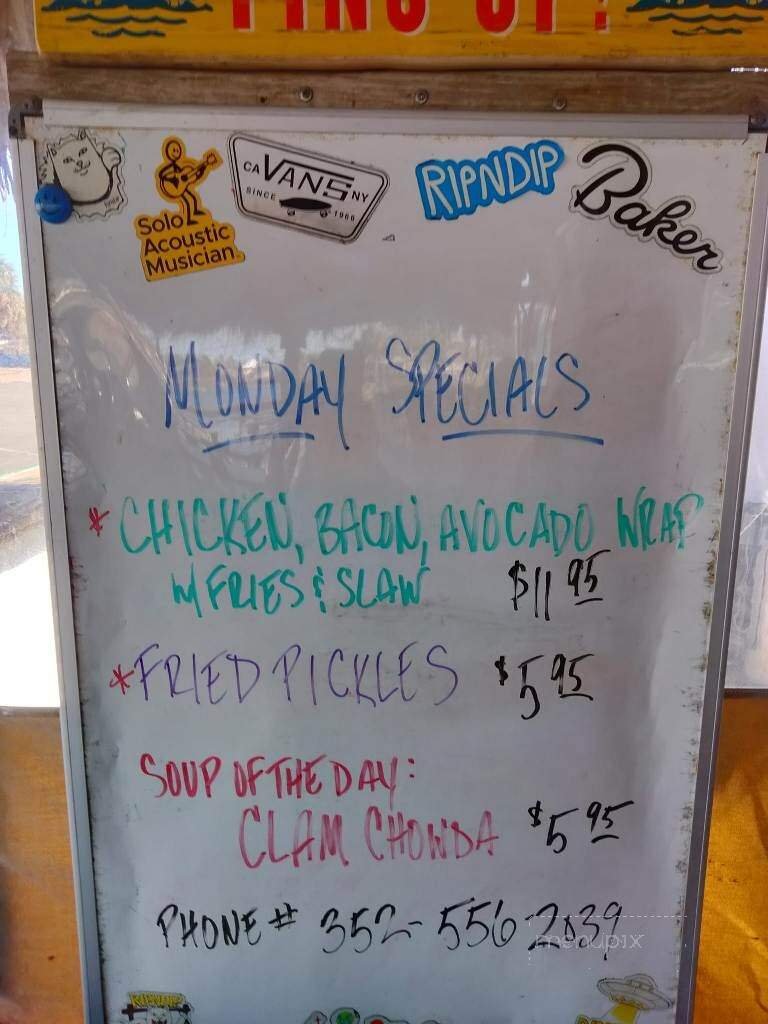 Solo
Acoustic
Musician
CA VANS NY
SINCE 1966
RIPNDIP
Baker
MONDAY SPECIALS
* CHICKEN, BACON, AVOCADO WRAP
W/ FRIES & SLAW $11 95
* FRIED PICKLES $5 95
SOUP OF THE DAY:
CLAM CHOWDA $5 95
PHONE # 352-556 2839
menupix